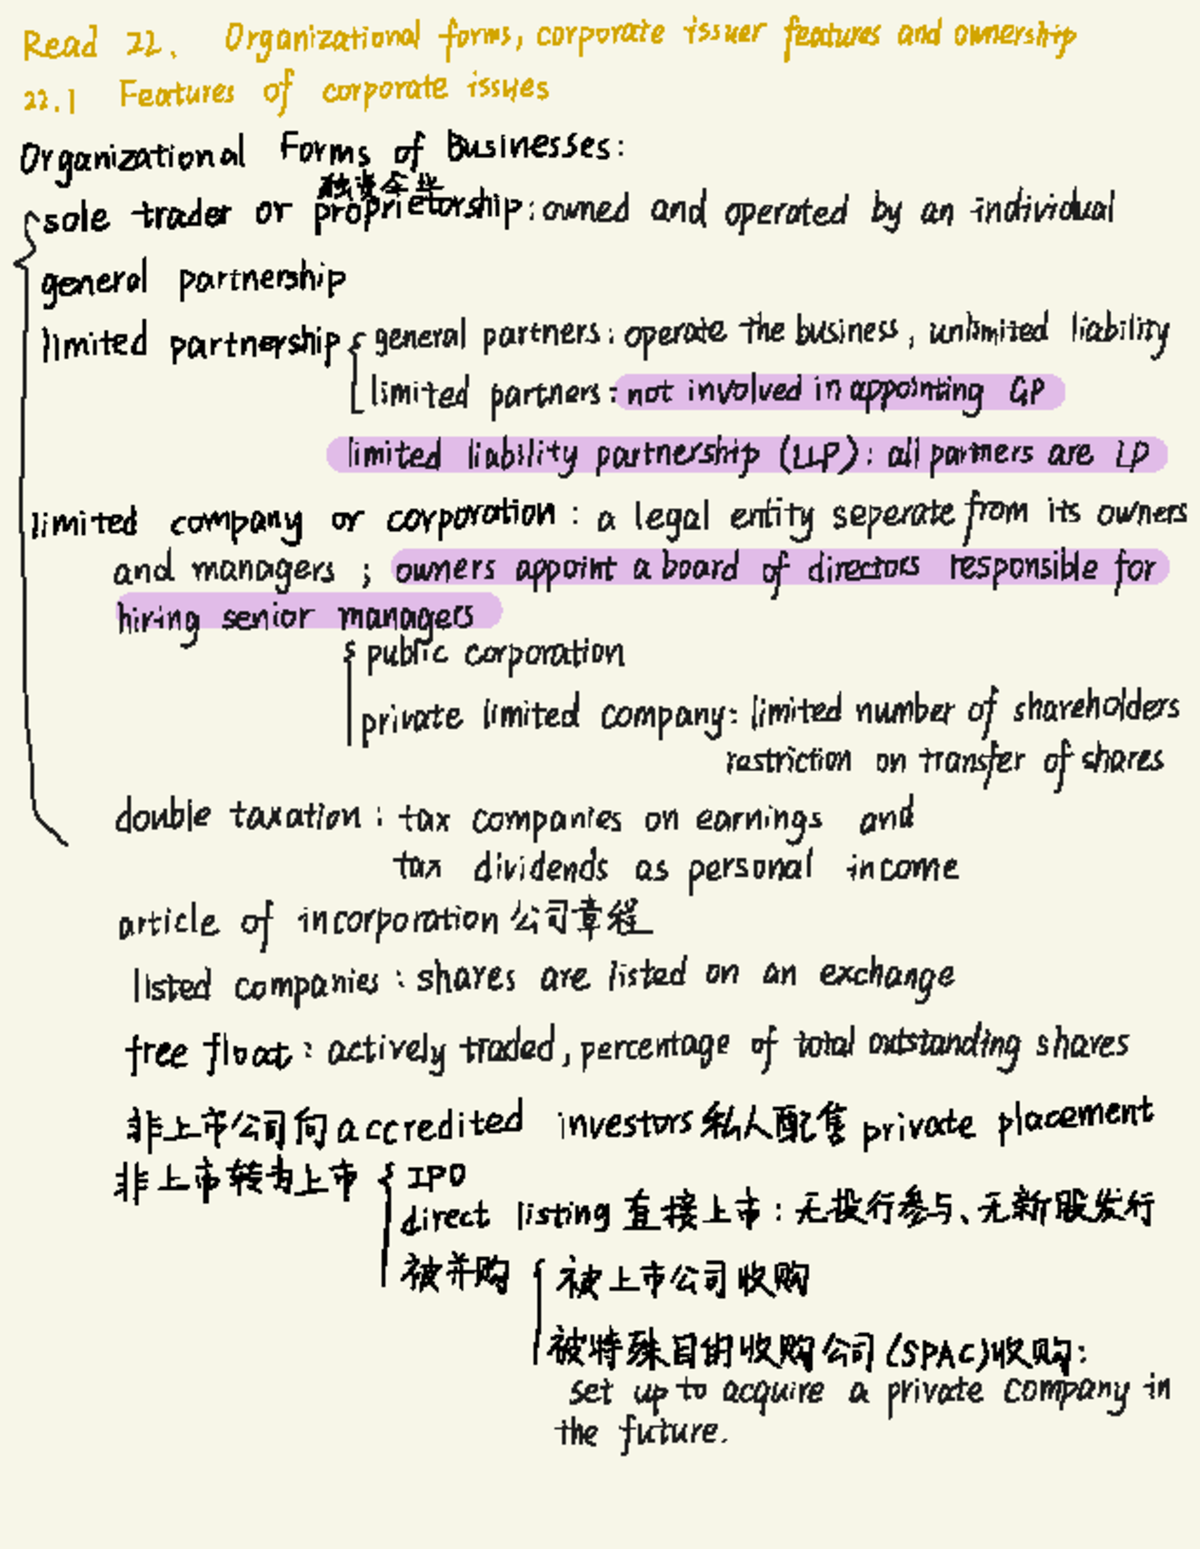 Read 22. Organizational forms, corporate issuer features and ownership
22.1 Features of corporate issues
Organizational Forms of Businesses:
独资企业
sole trader or proprietorship: owned and operated by an individual
general partnership
limited partnership general partners: operate the business, unlimited liability
limited partners: not involved in appointing GP
limited liability partnership (LLP): all partners are LP
limited company or corporation: a legal entity seperate from its owners
and managers; owners appoint a board of directors responsible for
hiring senior managers
public corporation
private limited company: limited number of shareholders
restriction on transfer of shares
double taxation: tax companies on earnings and
tax dividends as personal income
article of incorporation 公司章程
listed companies: shares are listed on an exchange
free float: actively traded, percentage of total outstanding shares
非上市公司向 accredited investors 私人配售 private placement
非上市转为上市 IPO
direct listing 直接上市: 无投行参与、无新股发行
被并购 被上市公司收购
被特殊目的收购公司 (SPAC)收购:
set up to acquire a private company in
the future.